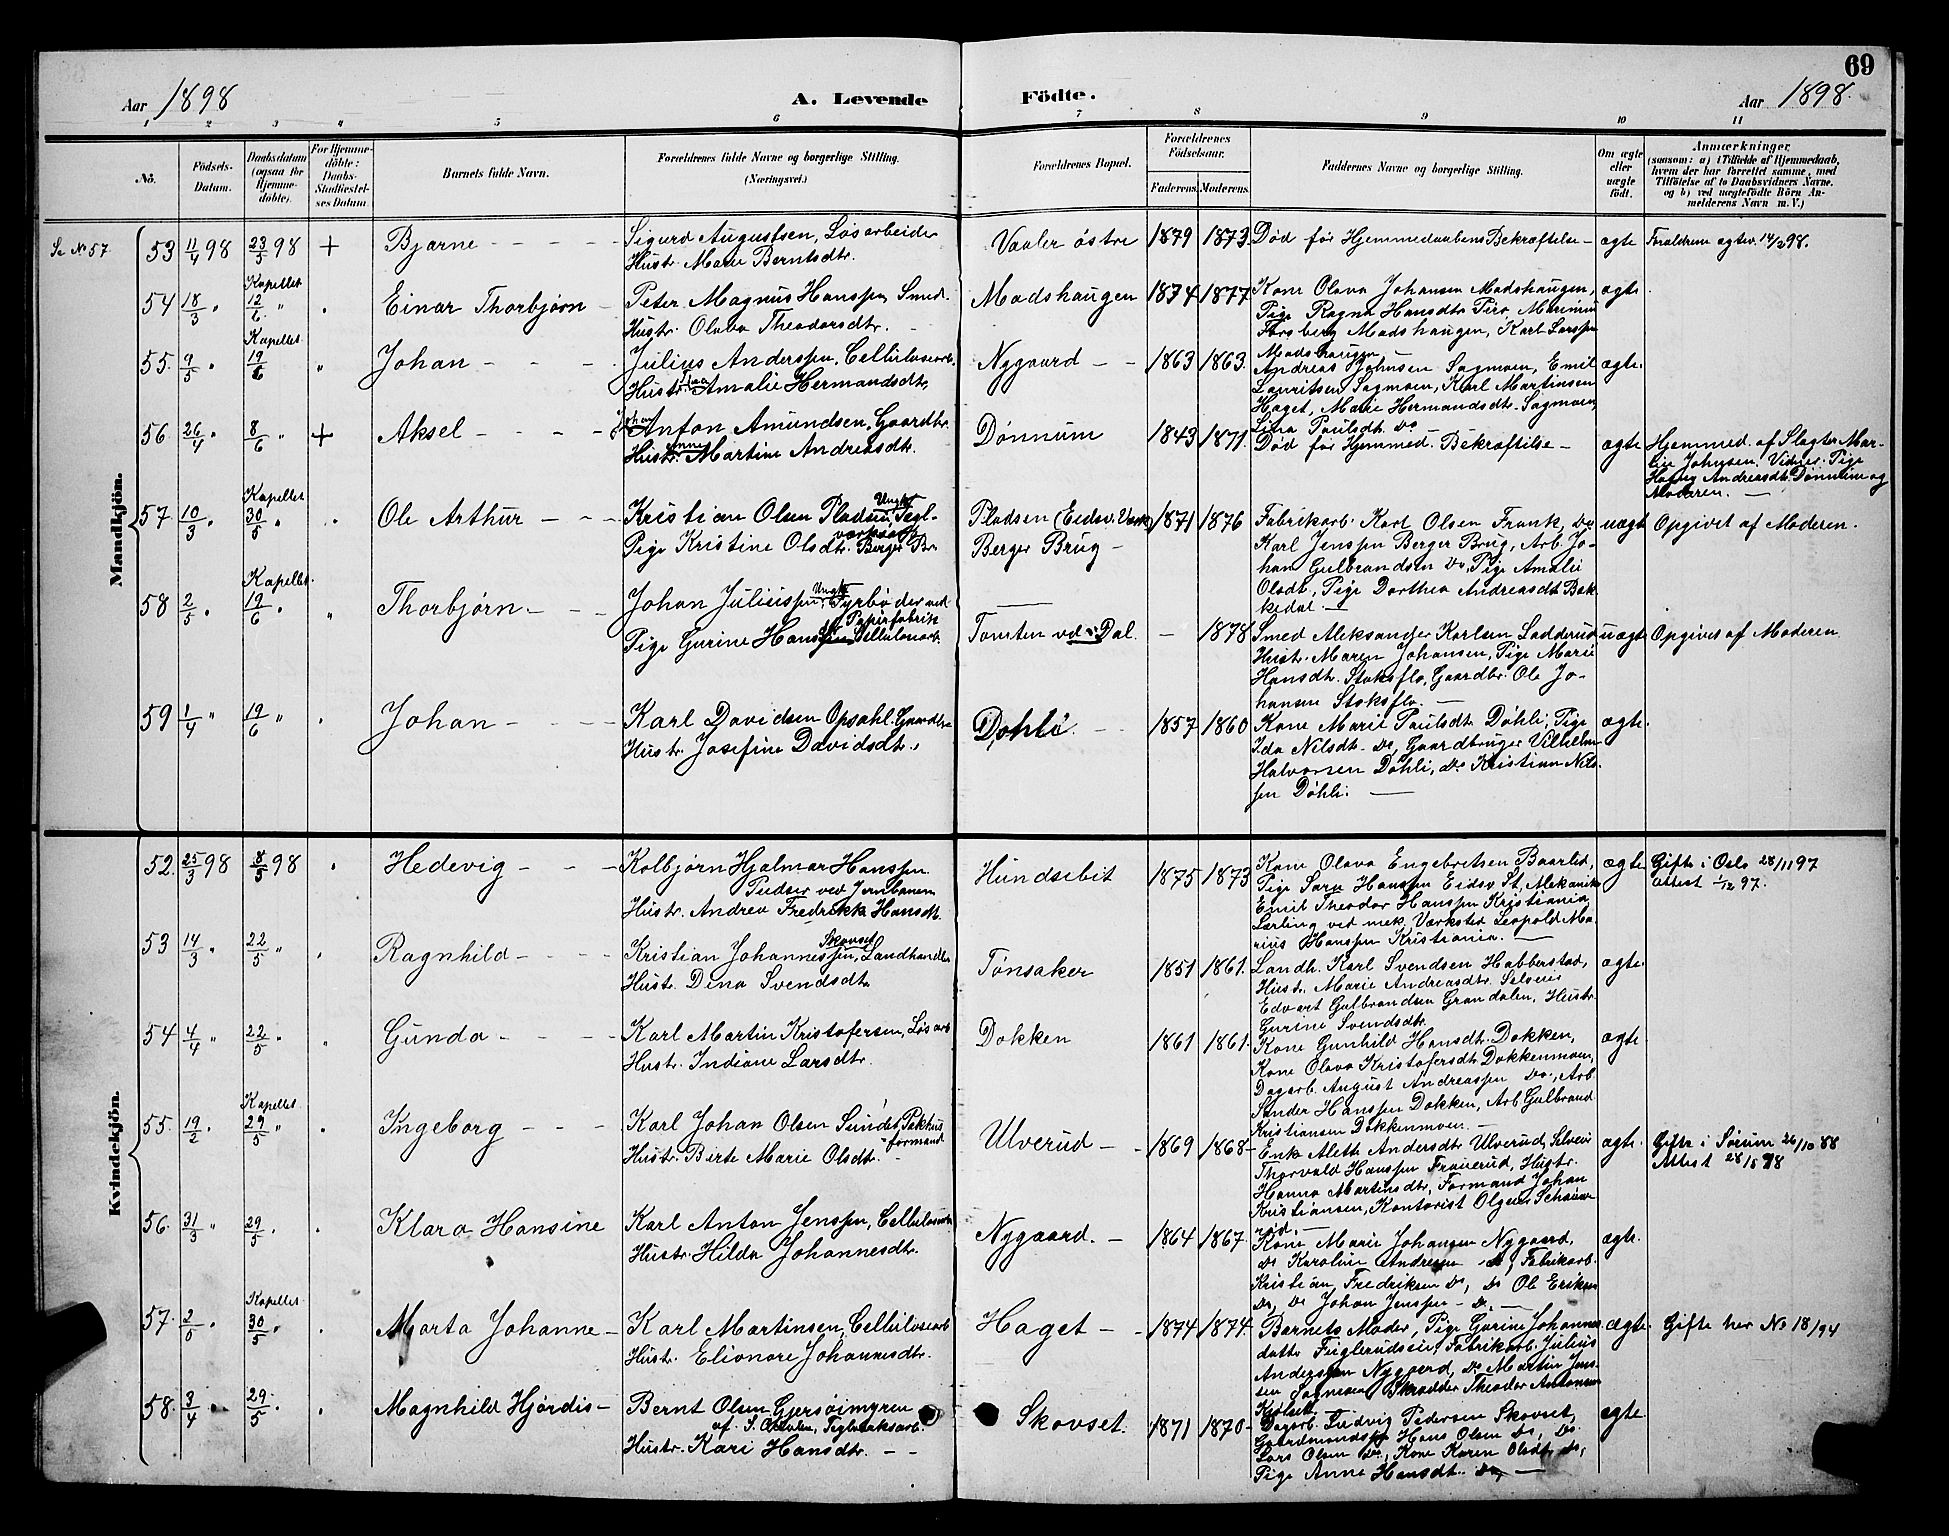 69
Aar 1898
A. Levende
Födte.
Aar 1898.
1 2 3 4 5 6 7 8 9 10 11
No.
Födsels-
Datum.
Daabsdatum
(ogsaa for
Hjemme-
döbte).
For Hjemme-
döbte:
Daabs-
Stadfæstel-
ses Datum.
Barnets fulde Navn.
Forældrenes fulde Navne og borgerlige Stilling.
(Næringsvei.)
Forældrenes Bopæl.
Forældrenes
Födselsaar.
Faderens. Moderens.
Faddernes Navne og borgerlige Stilling.
Om ægte
eller
uægte
födt.
Anmærkninger,
(saasom: a) i Tilfælde af Hjemmedaab,
hvem der har forrettet samme, med
Tilföielse af to Daabsvidners Navne,
og b) ved uægtefödte Börn An-
melderens Navn m. V.)
Mandkjön.
Se No 57
53 11/4 98 23/5 98 + Bjarne
Sigurd Augustsen, Løsarbeider
Hustr. Marie Berntsdtr.
Vaaler østre 1879 1873
Død før Hjemmedaabens Bekræftelse - ægte
Forældrene egtev. 14/2 98.
54 18/3 " Kapellet 12/6 " Einar Thorbjørn
Peter Magnus Hanssen, Smed.
Hustr. Olava Theodorsdtr.
Madshaugen 1874 1877
Kone Olava Johansen Madshaugen,
Pige Ragna Hansdtr
Forsberg Madshaugen, Karl Larssen
Madshaugen
ægte
55. 9/5 " Kapellet 19/6 " Johan
Julius Anderssen, Cellulosearb.
Hustr. Amalie Hermandsdtr.
Nygaard 1863 1863.
Andreas Johnsen Sagmoen, Emil
Lauritsen Sagmoen, Karl Martinsen
Haget, Marie Hermandsdtr. Sagmoen,
Lina Paulsdt. Do
ægte.
56. 26/4 " 8/6 " + Aksel
Johan Anton Amundsen, Gaardbr.
Hustr. Anne Martine Andreasdtr.
Dønnum 1843 1871.
Død før Hjemmed. Bekræftelse
ægte
Hjemmed. af Slagter Mar-
Johnsen. Vidner: Pige
Andreasdt. Dønnum og
Moderen.
57 10/3 " Kapellet 30/5 " Ole Arthur
Kristian Olsen Pladsen, Ungk. Tegl-
værksarb
Pige Kristine Olsdtr. Berger Br.
Pladsen (Eidsv. Værk)
Berger Brug
1871 1876
Fabrikarb. Karl Olsen Frank, Do
Karl Jenssen Berger Brug, Arb. Jo-
han Gulbrandsen Do, Pige Amalie
Olsdt, Pige Dorthea Andreasdt Bak-
kedal.
uægt
Opgivet af Moderen.
58 2/5 " Kapellet. 19/6 " Thorbjørn
Johan Juliussen, Ungk. Fyrbøder ved
Papirfabrik
Pige Gurine Hanssen Cellulosearb.
Tomten vd. Dal. - 1878
Smed Aleksander Karlsen Ladderud
Hustr. Maren Johansen, Pige Marie
Hansdtr. Stoksflo, Gaardbr. Ole Jo-
hansen Stoksflo.
uægte
Opgivet af Moderen.
59 1/4 " 19/6 " Johan
Karl Davidsen Opsahl. Gaardbr.
Hustr. Josefine Davidsdtr.
Døhli. 1857 1860
Kone Marie Paulsdt. Døhli, Pige
Ida Nilsdt. Do, Gaardbruger Vilhelm
Halvorsen Døhli, Do Kristian Nils-
sen Døhli.
ægte.
Kvindekjön.
52. 25/3 98 8/5 98 Hedevig
Kolbjørn Hjalmar Hanssen
Pudser ved Jernbanen
Hustr. Andrea Fredrikke Hansdt.
Hundsebit 1875 1873
Kone Olava Engebretsen Baarlid,
Pige Sara Hanssen Eidsv. St, Mekanike
Emil Theodor Hanssen Kristiania,
Lærling ved mek. Værksted Leopold Ma-
rius Hanssen Kristiania.
ægte
Gifte i Oslo 28/11 97
Attest 1/12 97.
53 14/3 " 22/5 " Ragnhild
Kristian Johannessen, Skovset Landhandler
Hustr. Dina Svendsdt.
Tønsaker 1851 1861.
Landh. Karl Svendsen Habberstad,
Hustr. Marie Andreasdtr. Selveier
Edvart Gulbrandsen Grandalen, Hustr.
Gurine Svendsdtr.
ægte.
54 4/4 " 22/5 " Gunda
Karl Martin Kristofersen, Løsarb
Hustr. Indiane Larsdtr.
Dokken 1861 1861.
Kone Gunhild Hansdtr. Dokken,
Kone Olava Kristofersdt. Dokkenmoen,
Dagarb. August Andreassen Do., Arb.
Sander Hanssen Dokken, Arb Gulbrand
Kristiansen Dokkenmoen.
ægte.
55. 19/2 " Kapellet 29/5 " Ingeborg
Karl Johan Olsen Sundet, Pakhus
formand
Hustr. Birte Marie Olsdtr.
Ulverud 1869 1868
Enke Alette Andersdt. Ulverud, Selveier
Thorvald Hanssen Trauerud, Hustr.
Hanna Martinsdtr, Formand Johan
Kristiansen, Kontorist Olger
ægte.
Gifte i Sørum 26/10 88
Attest 28/5 98
56. 31/3 " 29/5 " Klara Hansine
Karl Anton Jenssen, Cellulosearb
Hustr. Hilda Johannesdtr.
Nygaard. 1864 1867.
Kone Marie Johansen Nygaard,
Do Karoline Andresen Do, Fabrikarb.
Kristian Fredriksen Do, Do Ole Eriksen
Do, Do Johan Jenssen - Do.
ægte.
57. 2/5 " Kapellet 30/5 " Marta Johanne
Karl Martinsen, Cellulosearb
Hustr. Elionore Johannesdtr.
Haget 1874 1874
Barnets Moder, Pige Gurine Johannes-
datter Fuglerudseie, Fabrikarb. Julius
Anderssen Nygaard, Do Martin Jens-
sen Sagmoen, Skrædder Theodor Antonsen
ægte.
Gifte her No 18/94
58. 3/4 " 29/5 " Magnhild Hjørdis
Bernt Olsen Gjersøimyren
Teglværksarb.
Hustr. Kari Hansdtr.
Skovset. 1871 1870
Dagarb. Ludvig Pedersen Skovset,
Gaardmandss. Hans Olsen Do, Do.
Lars Olsen Do, Kone Karen Olsdt. Do,
Pige Anne Hansdt. Do,
ægte